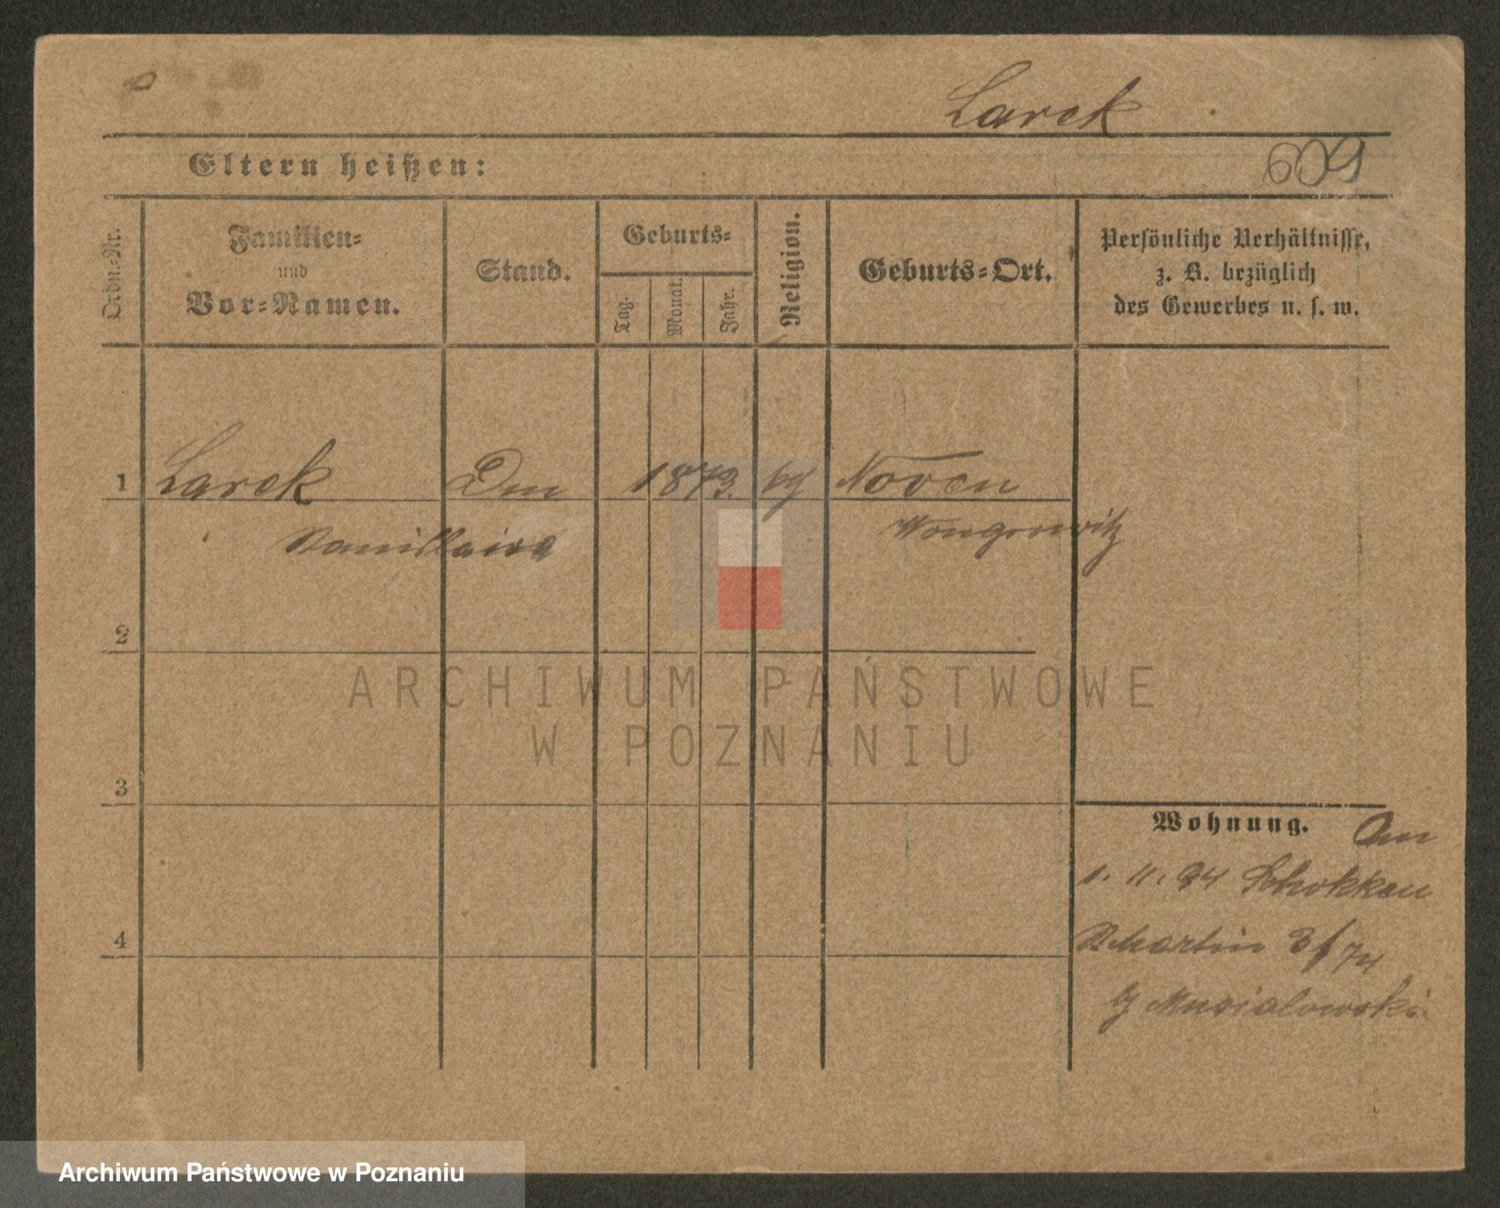 Larek
609
Eltern heißen:
Ordn.-Nr.
Familien-
und
Vor-Namen.
Stand.
Geburts-
Tag.
Monat.
Jahr.
Religion.
Geburts-Ort.
Persönliche Verhältnisse,
z. B. bezüglich
des Gewerbes u. s. w.
1 Larek 1873. Noven
Stanislawa Wongrowitz
2
ARCHIWUM PAŃSTWOWE
W POZNANIU
3
Wohnung. An
1. 11. 94 Schokken
St Martin 74
Musialowski
4
Archiwum Państwowe w Poznaniu